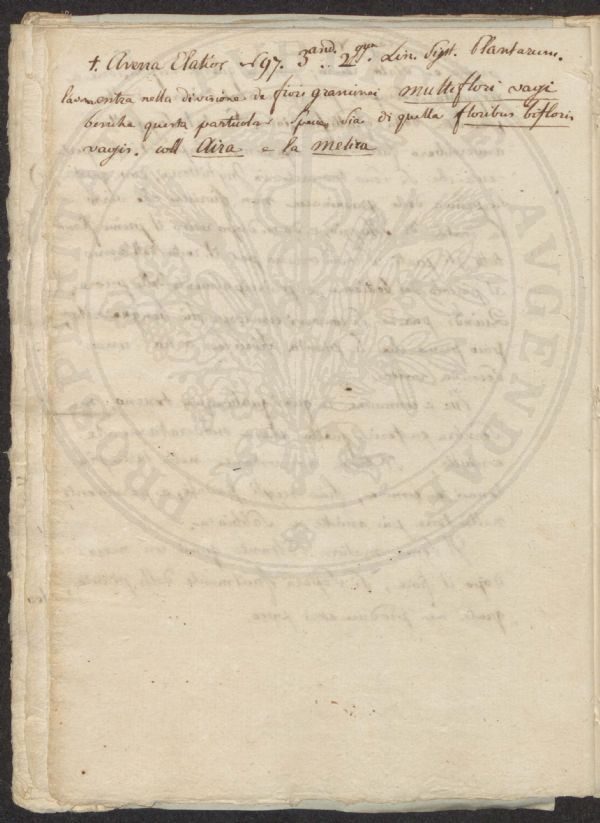 +. Avena Elatior 97. 3.and. 2.gyn. Lin. Sist. Plantarum.
entra nella divisione de fiori graminei multiflori vagi
benche questa particolar specie sia di quella floribus bifloris
vagis. coll Aira e la melica
PROSPERITATI AVGENDAE